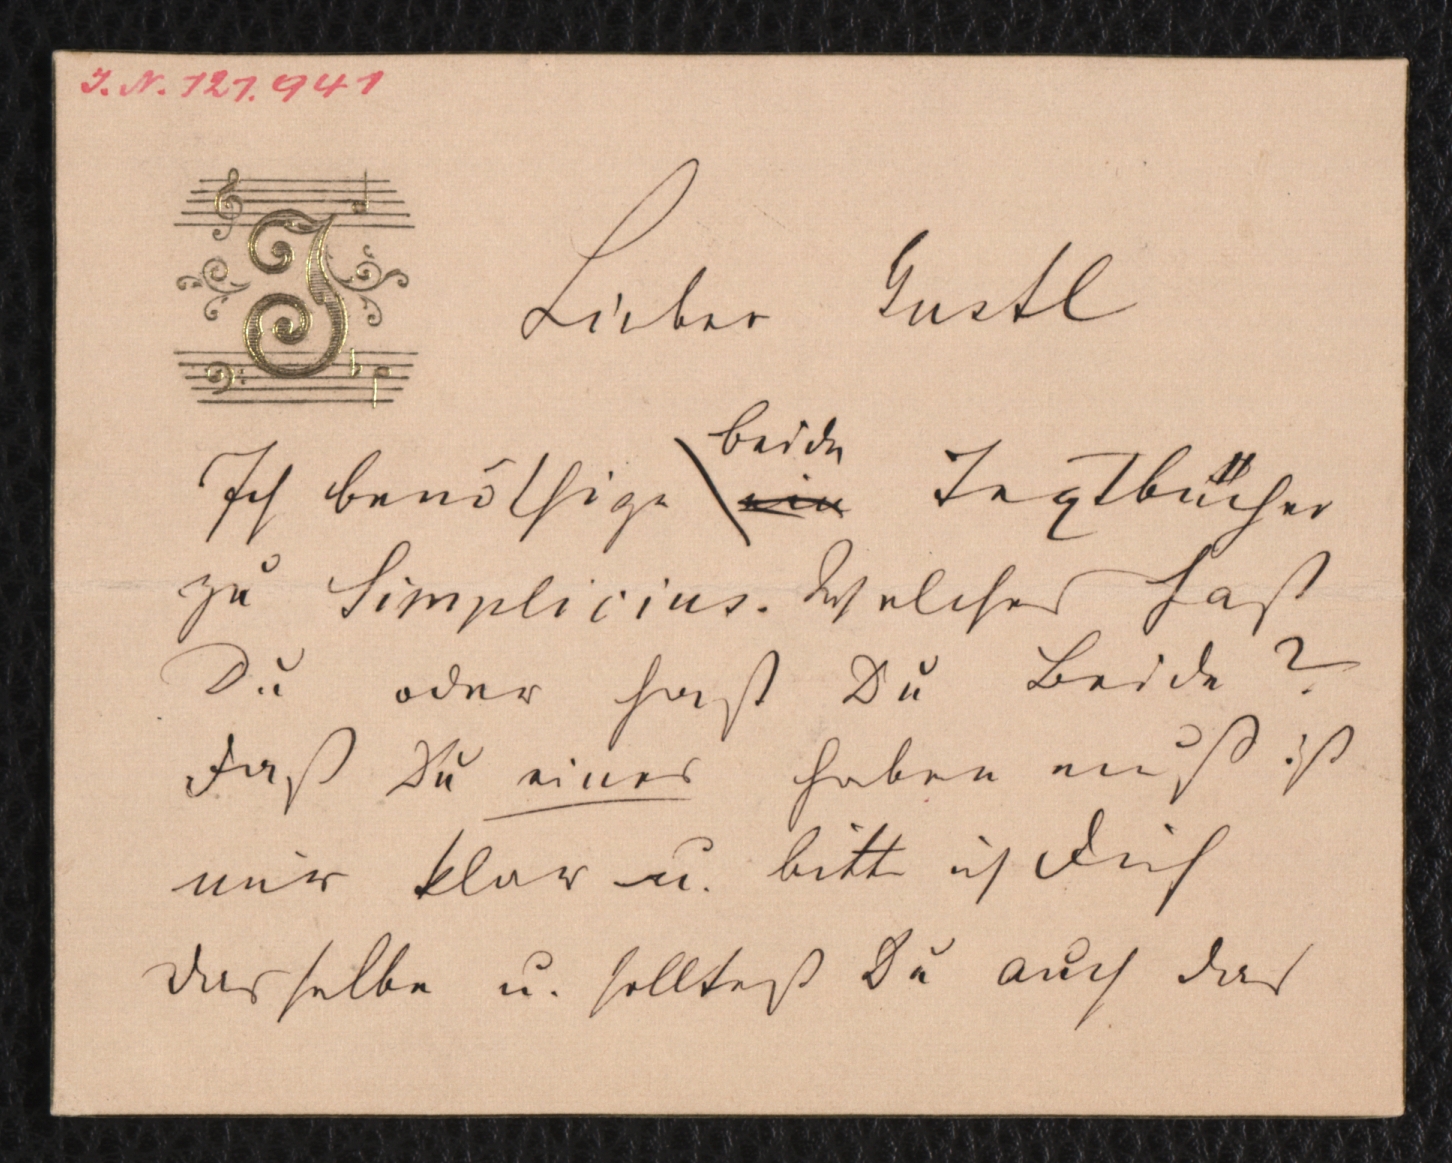 J. N. 121.941
J
Lieber Gustl
beide
Ich benöthige ein Textbücher
zu Simplicius. Welches hast
Du oder hast Du Beide?
Daß Du eines haben mußt ist
mir klar u. bitte ich Dich
dasselbe u. solltest Du auch das